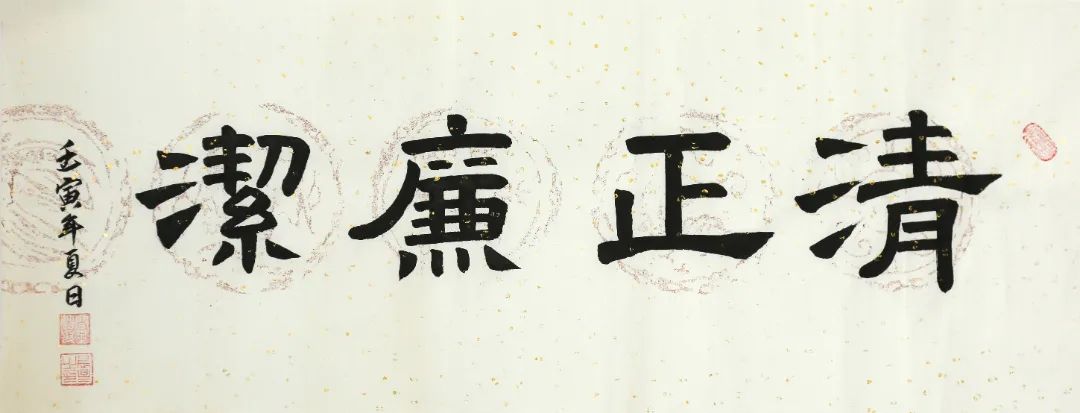 清正廉潔
壬寅年夏日